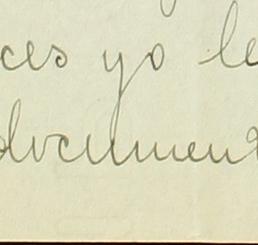 ces yo le
document